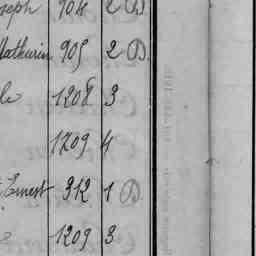 seph 904 2 D.
Mathurin 905 2 D.
le 1208 3
1209 4
Ernest 912 1 D.
1209 3